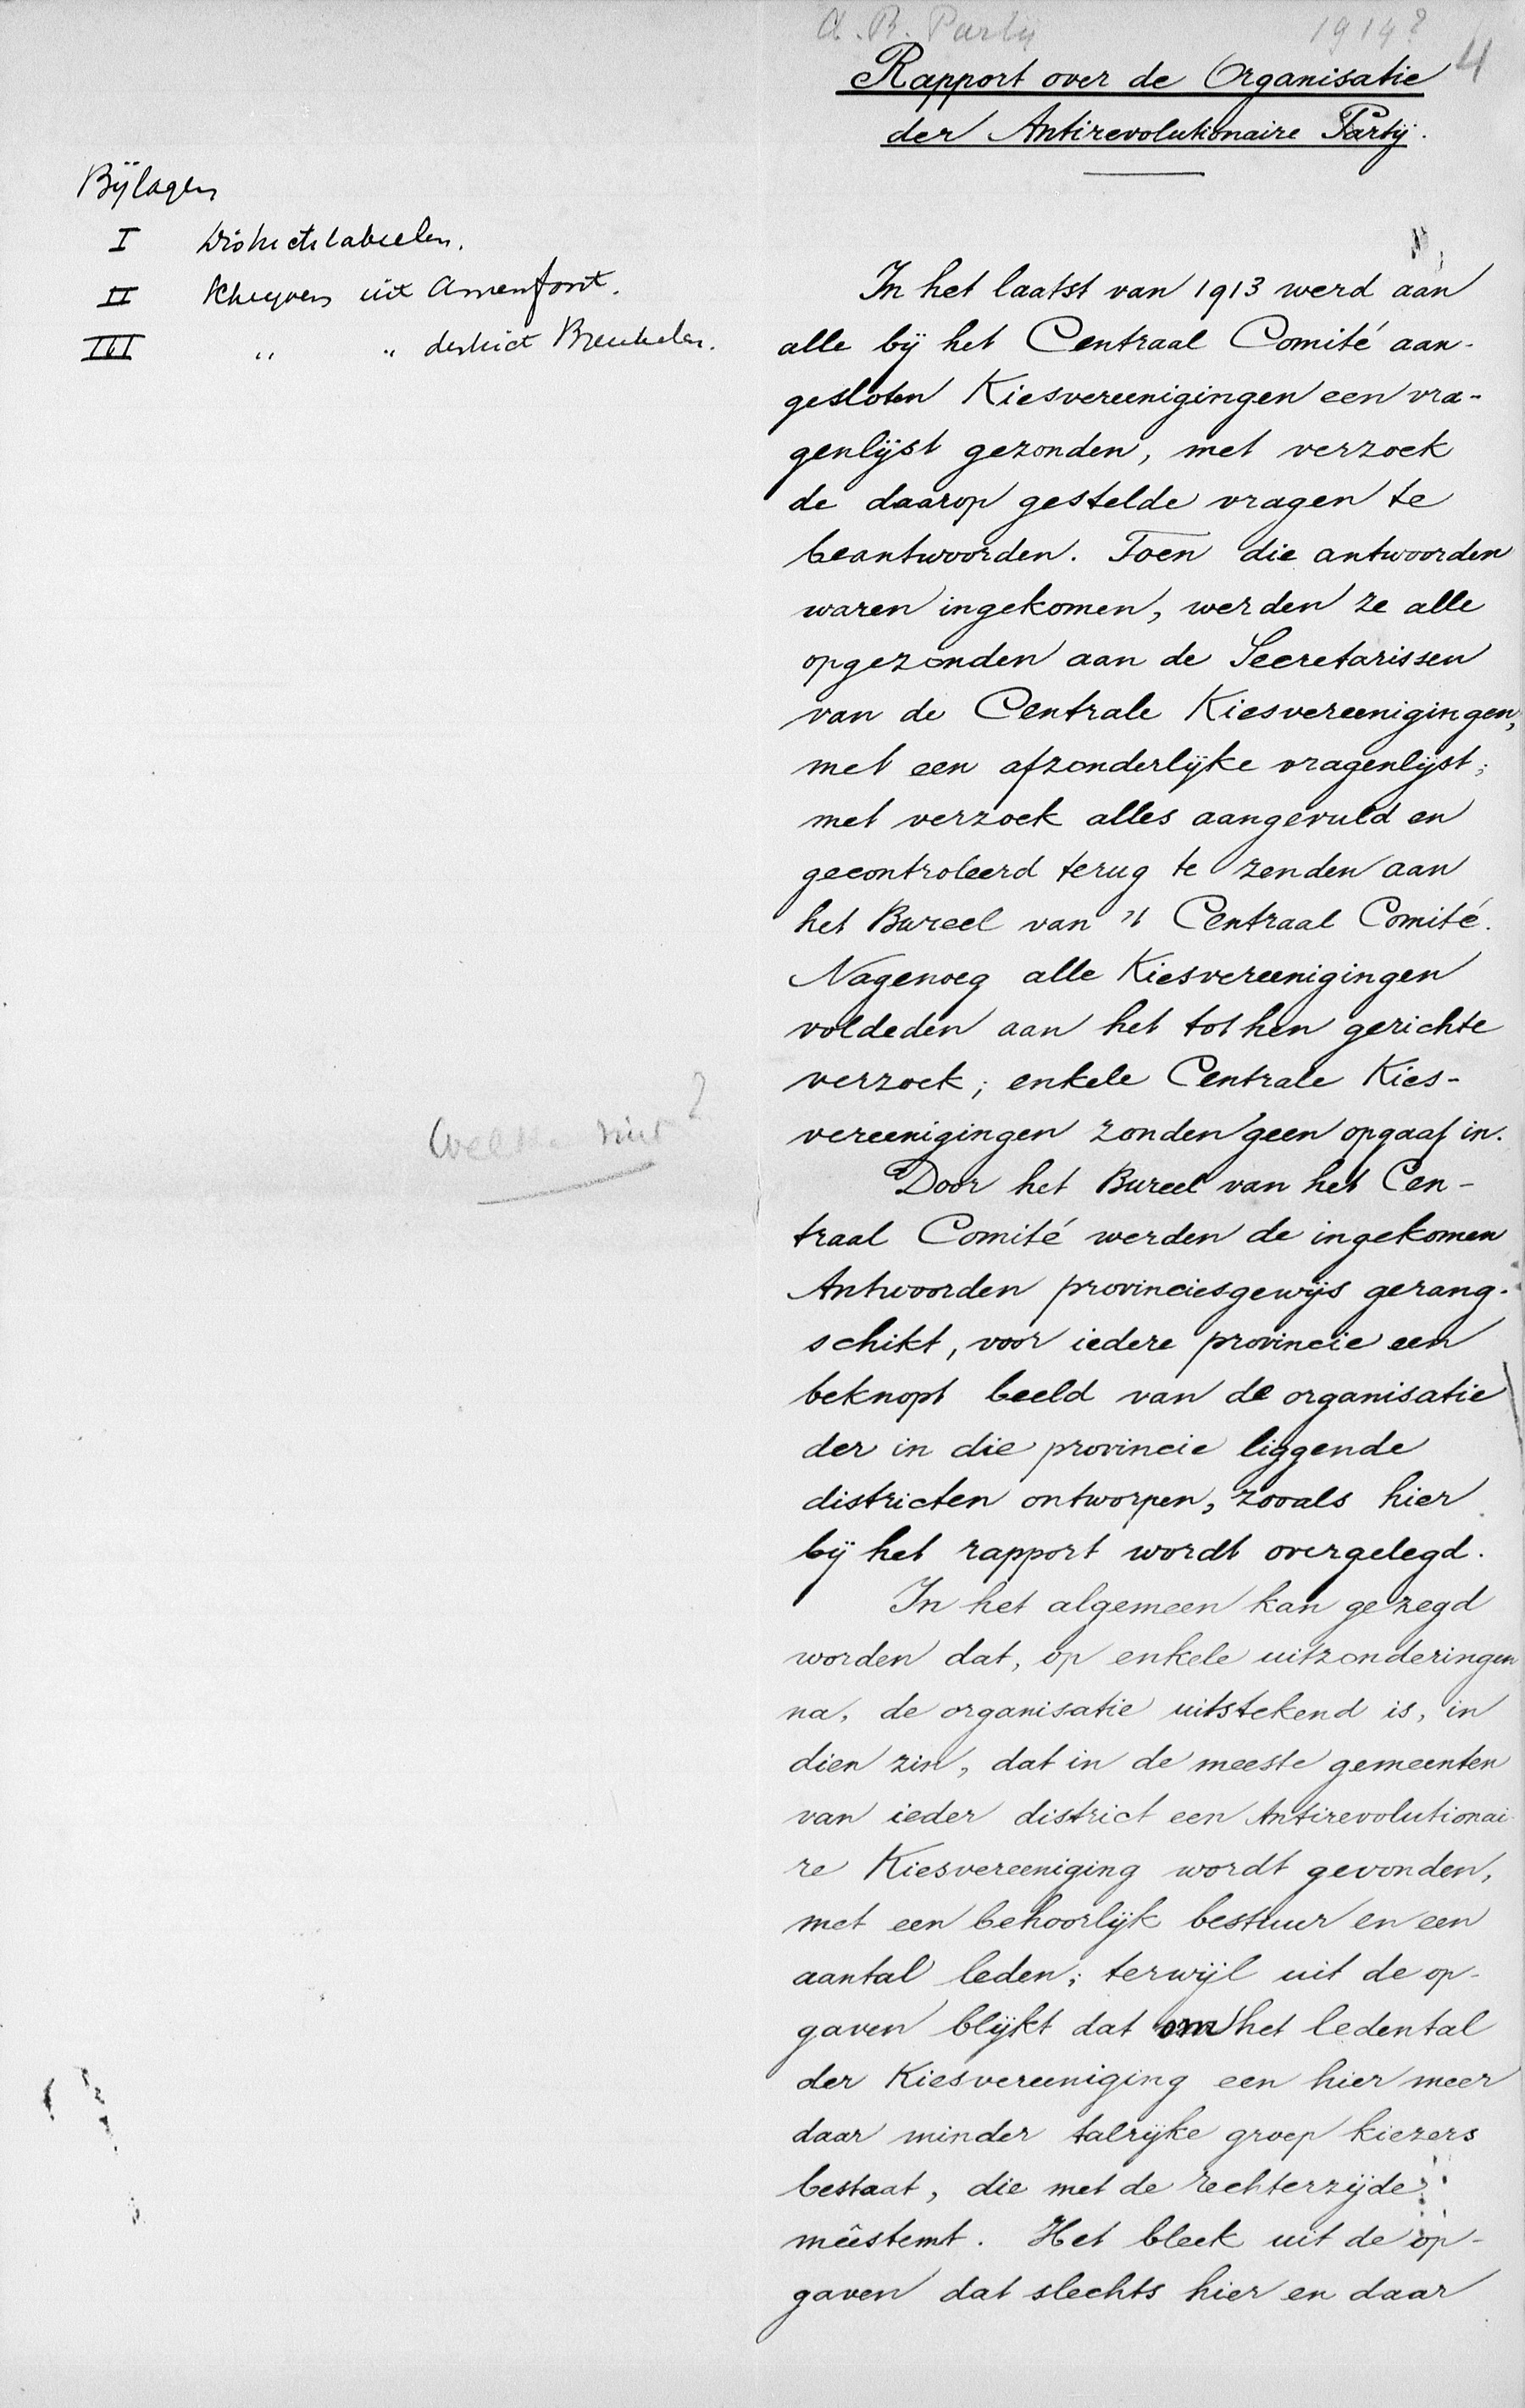 A. R. Partij 1914?
4
Rapport over de Organisatie
der Antirevolutionaire Partij.
Bijlagen
I Districtstabellen.
II Schrijven uit Amersfoort.
III " " district Breukelen.
In het laatst van 1913 werd aan
alle bij het Centraal Comité aan-
gesloten Kiesvereenigingen een vra-
genlijst gezonden, met verzoek
de daarop gestelde vragen te
beantwoorden. Toen die antwoorden
waren ingekomen, werden ze alle
opgezonden aan de Secretarissen
van de Centrale Kiesvereenigingen,
met een afzonderlijke vragenlijst;
met verzoek alles aangevuld en
gecontroleerd terug te zenden aan
het Bureel van 't Centraal Comité.
Nagenoeg alle Kiesvereenigingen
voldeden aan het tot hen gerichte
verzoek; enkele Centrale Kies-
vereenigingen zonden geen opgaaf in.
Welke niet?
Door het Bureel van het Cen-
traal Comité werden de ingekomen
Antwoorden provinciesgewijs gerang-
schikt, voor iedere provincie een
beknopt beeld van de organisatie
der in die provincie liggende
districten ontworpen, zooals hier
bij het rapport wordt overgelegd.
In het algemeen kan gezegd
worden dat, op enkele uitzonderingen
na, de organisatie uitstekend is, in
dien zin, dat in de meeste gemeenten
van ieder district een Antirevolutionai-
re Kiesvereeniging wordt gevonden,
met een behoorlijk bestuur en een
aantal leden; terwijl uit de op-
gaven blijkt dat om het ledental
der Kiesvereeniging een hier meer
daar minder talrijke groep kiezers
bestaat, die met de rechterzijde
meêstemt. Het bleek uit de op-
gaven dat slechts hier en daar